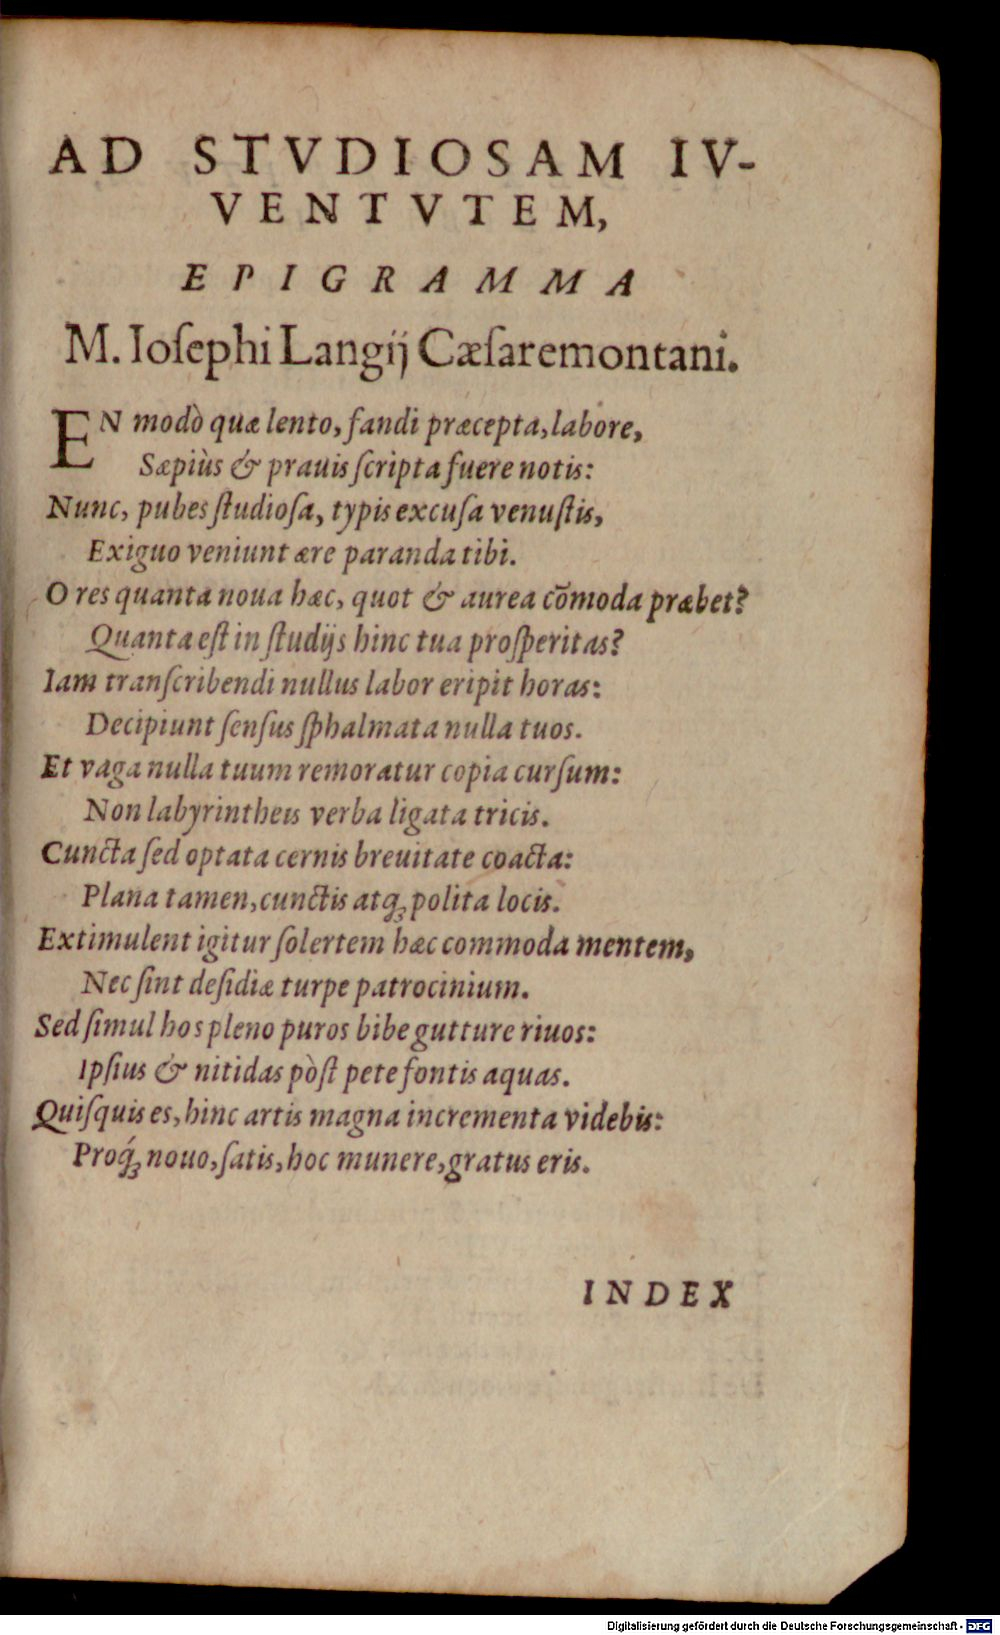 AD STVDIOSAM IV-
VENTVTEM,
EPIGRAMMA
M. Ioſephi Langij Cæſaremontani.
EN modò quæ lento, fandi præcepta, labore,
Sæpiùs & prauis ſcripta fuere notis:
Nunc, pubes ſtudioſa, typis excuſa venuſtis,
Exiguo veniunt ære paranda tibi.
O res quanta noua hæc, quot & aurea cōmoda præbet?
Quanta eſt in ſtudijs hinc tua proſperitas?
Iam tranſcribendi nullus labor eripit horas:
Decipiunt ſenſus ſphalmata nulla tuos.
Et vaga nulla tuum remoratur copia curſum:
Non labyrintheis verba ligata tricis.
Cuncta ſed optata cernis breuitate coacta:
Plana tamen, cunctis atq́ꝫ polita locis.
Extimulent igitur ſolertem hæc commoda mentem,
Nec ſint deſidiæ turpe patrocinium.
Sed ſimul hos pleno puros bibe gutture riuos:
Ipſius & nitidas pòſt pete fontis aquas.
Quiſquis es, hinc artis magna incrementa videbis:
Proq́ꝫ nouo, ſatis, hoc munere, gratus eris.
INDEX
Digitalisierung gefördert durch die Deutsche Forschungsgemeinschaft - DFG